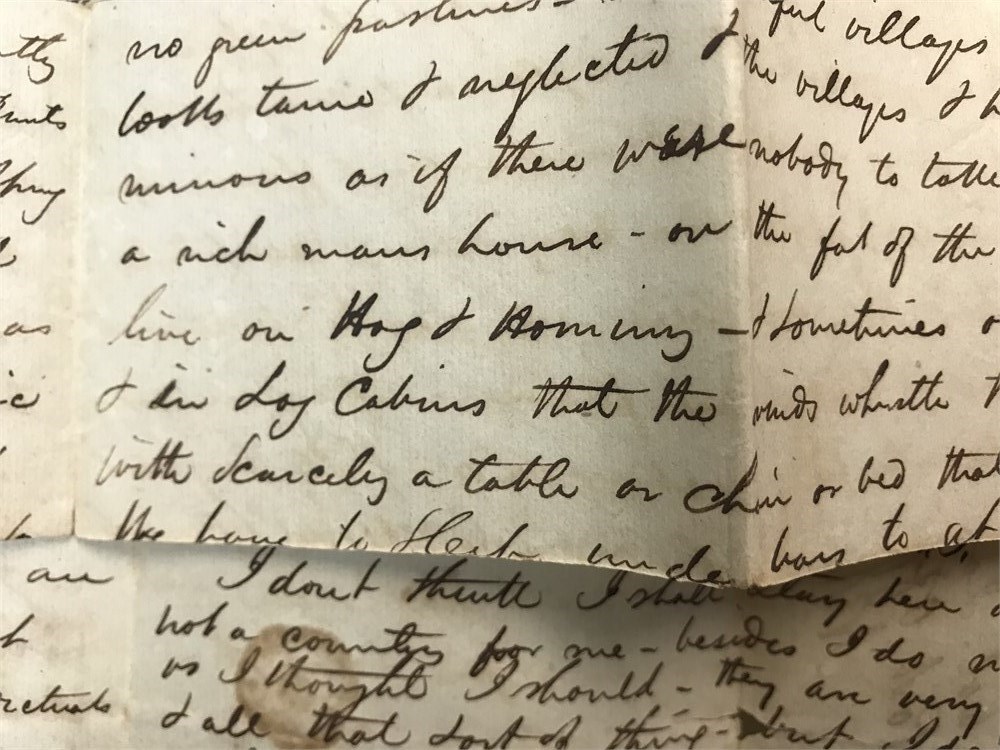 no green pastures -
looks tame & neglected &
ruinous as if there were
a rich mans house - on
live on Hog & Hominy -
& in Log Cabins that the
with scarcely a table or
We have to Sleep under
ful villages
the villages &
nobody to take
the fat of the
& sometimes
winds whistle
or bed that
bars to
I dont think I shall stay here
not a country for me - besides I do
as I thought I should - they are very
& all that sort of thing - but I
as
an